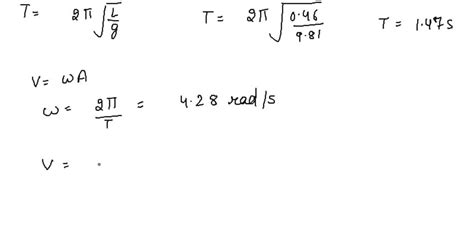 T = 2π√(L/g) T = 2π√(0.46/9.81) T = 1.47s
V = ωA
ω = 2π/T = 4.28 rad/s
V =